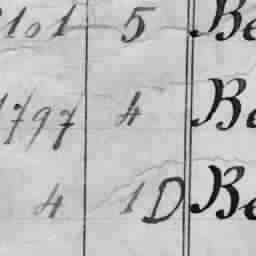 1101 5 Be
1797 4 Be
4 1D Be